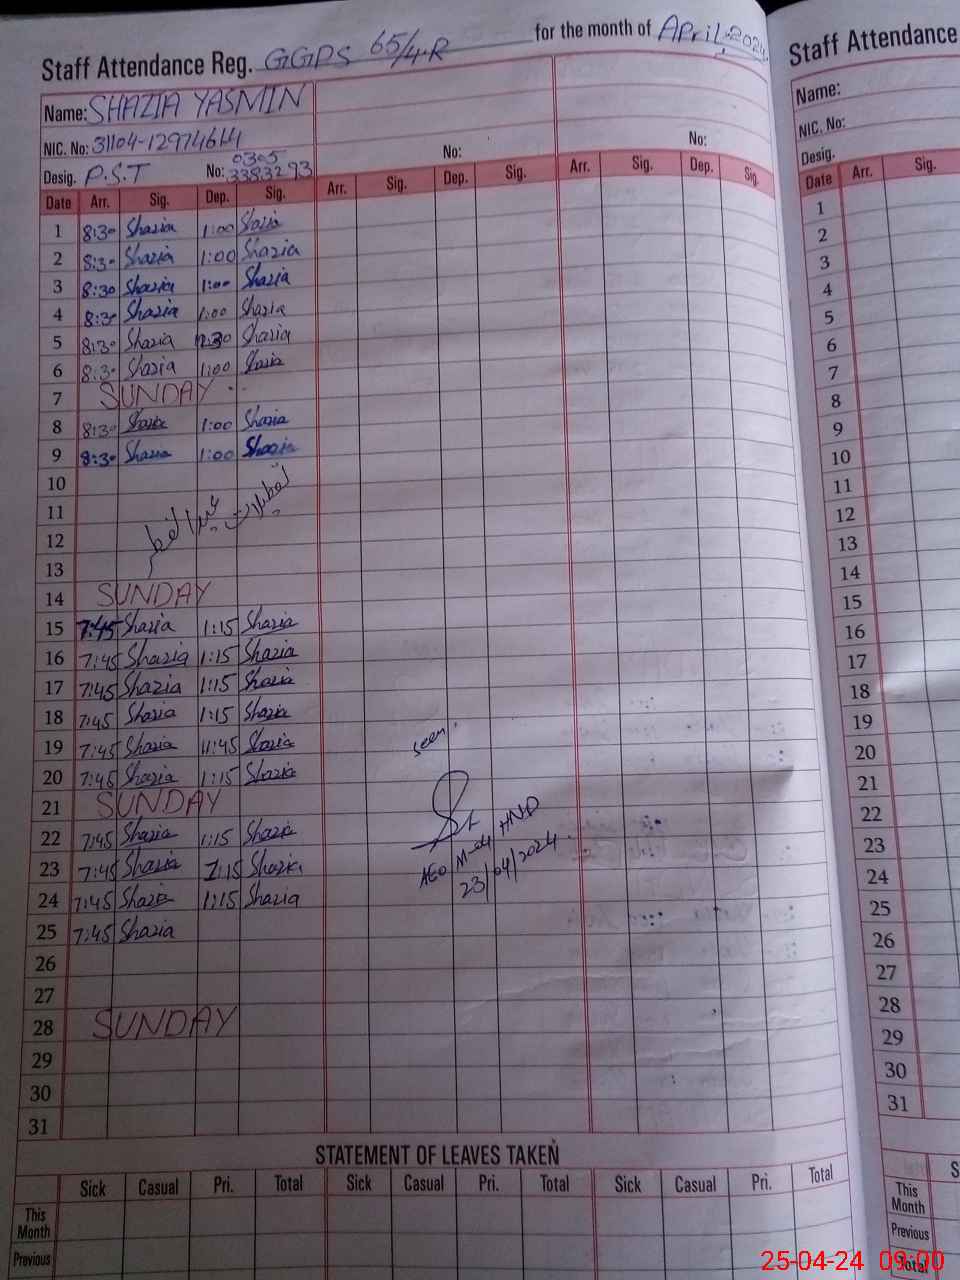 Staff Attendance Reg. GGPS 65/4-R for the month of April-2024
Name: SHAZIA YASMIN
NIC. No: No: No:
Desig. P.S.T No: 0305
3383293
Date Arr. Sig. Dep. Sig. Arr. Sig. Dep. Sig. Arr. Sig. Dep. Sig.
1 8:30 Shazia 1:00 Shazia
2 8:30 Shazia 1:00 Shazia
3 8:30 Shazia 1:00 Shazia
4 8:30 Shazia 1:00 Shazia
5 8:30 Shazia 12:30 Shazia
6 8:30 Shazia 1:00 Shazia
7 SUNDAY
8 8:30 Shazia 1:00 Shazia
9 8:30 Shazia 1:00 Shazia
10
11 تعطیلات عید الفطر
12
13
14 SUNDAY
15 7:45 Shazia 1:15 Shazia
16 7:45 Shazia 1:15 Shazia
17 7:45 Shazia 1:15 Shazia
18 7:45 Shazia 1:15 Shazia
19 7:45 Shazia 11:45 Shazia
seen
20 7:45 Shazia 1:15 Shazia
21 SUNDAY
22 7:45 Shazia 1:15 Shazia
23 7:45 Shazia 1:15 Shazia
AEO M-04 HND
23/04/2024
24 7:45 Shazia 1:15 Shazia
25 7:45 Shazia
26
27
28 SUNDAY
29
30
31
STATEMENT OF LEAVES TAKEN
Sick Casual Pri. Total Sick Casual Pri. Total Sick Casual Pri. Total
This
Month
Previous
Staff Attendance
Name:
NIC. No:
Desig.
Date Arr. Sig.
1
2
3
4
5
6
7
8
9
10
11
12
13
14
15
16
17
18
19
20
21
22
23
24
25
26
27
28
29
30
31
This
Month
Previous
Total
25-04-24 09:00